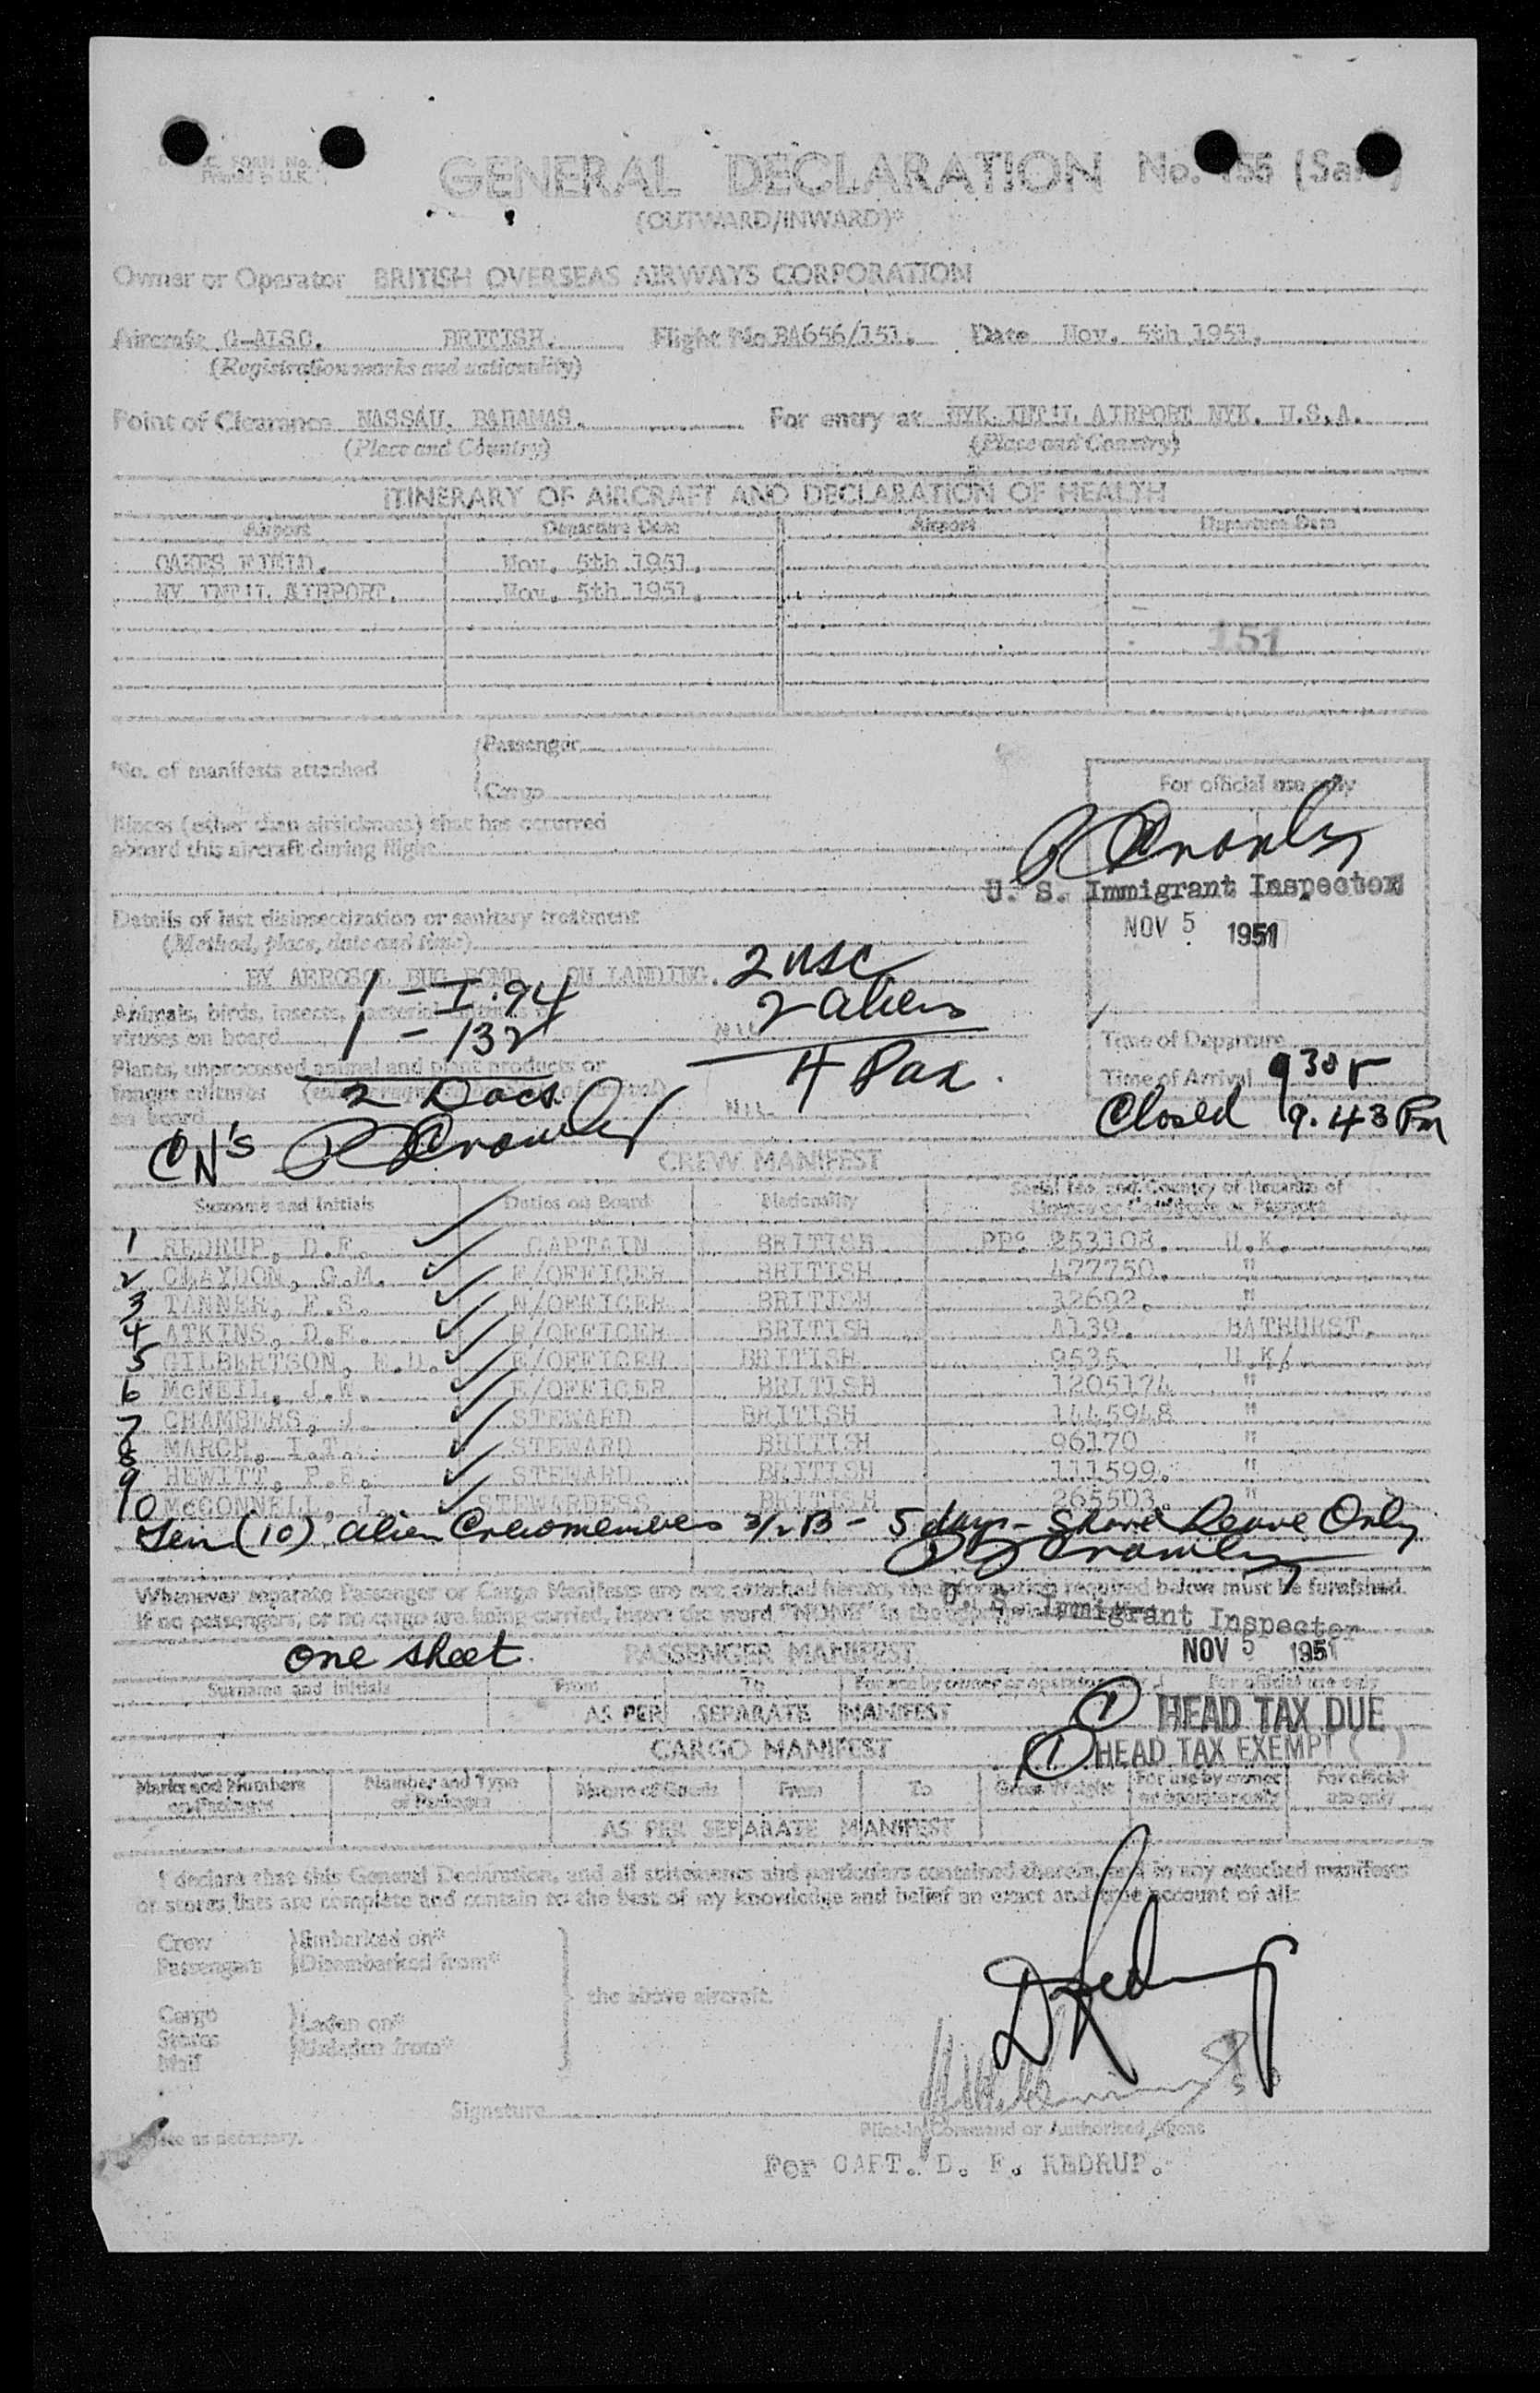 FORM No.
Printed in U.K.
GENERAL DECLARATION No. 155
(OUTWARD/INWARD)*
Owner or Operator BRITISH OVERSEAS AIRWAYS CORPORATION
Aircraft BRITISH. Flight No. BA656/151. Date Nov. 5th 1951.
(Registration marks and nationality)
Point of Clearance NASSAU, BAHAMAS. For entry at NYK INT'L AIRPORT NYK. U.S.A.
(Place and Country) (Place and Country)
ITINERARY OF AIRCRAFT AND DECLARATION OF HEALTH
Airport Departure Date Airport Departure Date
OAKES FIELD. Nov. 5th 1951.
NY INT'L AIRPORT. Nov. 5th 1951.
151
Passenger
No. of manifests attached
Cargo
For official use only
Illness (other than airsickness) that has occurred
aboard this aircraft during flight
U. S. Immigrant Inspector
NOV 5 1951
Details of last disinsectization or sanitary treatment
(Method, place, date and time)
2 USC
BY AEROSOL BUG BOMB ON LANDING.
1 - I.94 2 aliens
Animals, birds, insects, bacterial cultures or
viruses on board NIL
1 - 132
4 Pax.
Time of Departure
Plants, unprocessed animal and plant products or
fungus cultures
on board NIL
2 Docs
Time of Arrival 930 P
Closed 9.43 Pm
CN's
CREW MANIFEST
Surname and Initials Duties on Board Nationality Serial No. and Country of Issue of
Licence or Certificate or Passport
1 REDRUP, D.F. CAPTAIN BRITISH PP: 253108. U.K.
2 CLAYDON, G.M. F/OFFICER BRITISH 477750. "
3 TANNER, F.S. N/OFFICER BRITISH 32692. "
4 ATKINS, D.E. R/OFFICER BRITISH A139. BATHURST.
5 GILBERTSON, E.D. E/OFFICER BRITISH 9535 U.K/
6 McNEIL, J.W. E/OFFICER BRITISH 1205174 "
7 CHAMBERS, J. STEWARD BRITISH 1445948 "
8 MARCH, I.T. STEWARD BRITISH 96170 "
9 HEWITT, P.E. STEWARD BRITISH 111599. "
10 McCONNELL, J. STEWARDESS BRITISH 265503. "
Ten (10) alien Crewmembers 3/2 B - 5 days - Shore Leave Only
Whenever separate Passenger or Cargo Manifests are not attached hereto, the information required below must be furnished.
If no passengers, or no cargo are being carried, insert the word "NONE" in the
U. S. Immigrant Inspector
NOV 5 1951
one sheet.
PASSENGER MANIFEST
Surname and Initials From To For use by owner or operator only For official use only
AS PER SEPARATE MANIFEST
(1) HEAD TAX DUE
CARGO MANIFEST
(1) HEAD TAX EXEMPT ( )
Marks and Numbers on Packages Number and Type of Packages Nature of Goods From To Gross Weight For use by owner or operator only For official use only
AS PER SEPARATE MANIFEST
I declare that this General Declaration, and all statements and particulars contained therein, and in any attached manifests
or stores lists are complete and contain to the best of my knowledge and belief an exact and true account of all:
Crew Embarked on*
Passengers Disembarked from*
the above aircraft.
Cargo Laden on*
Stores Unladen from*
Mail
Signature
Pilot-in-Command or Authorised Agent
as necessary.
For CAPT. D. F. REDRUP.